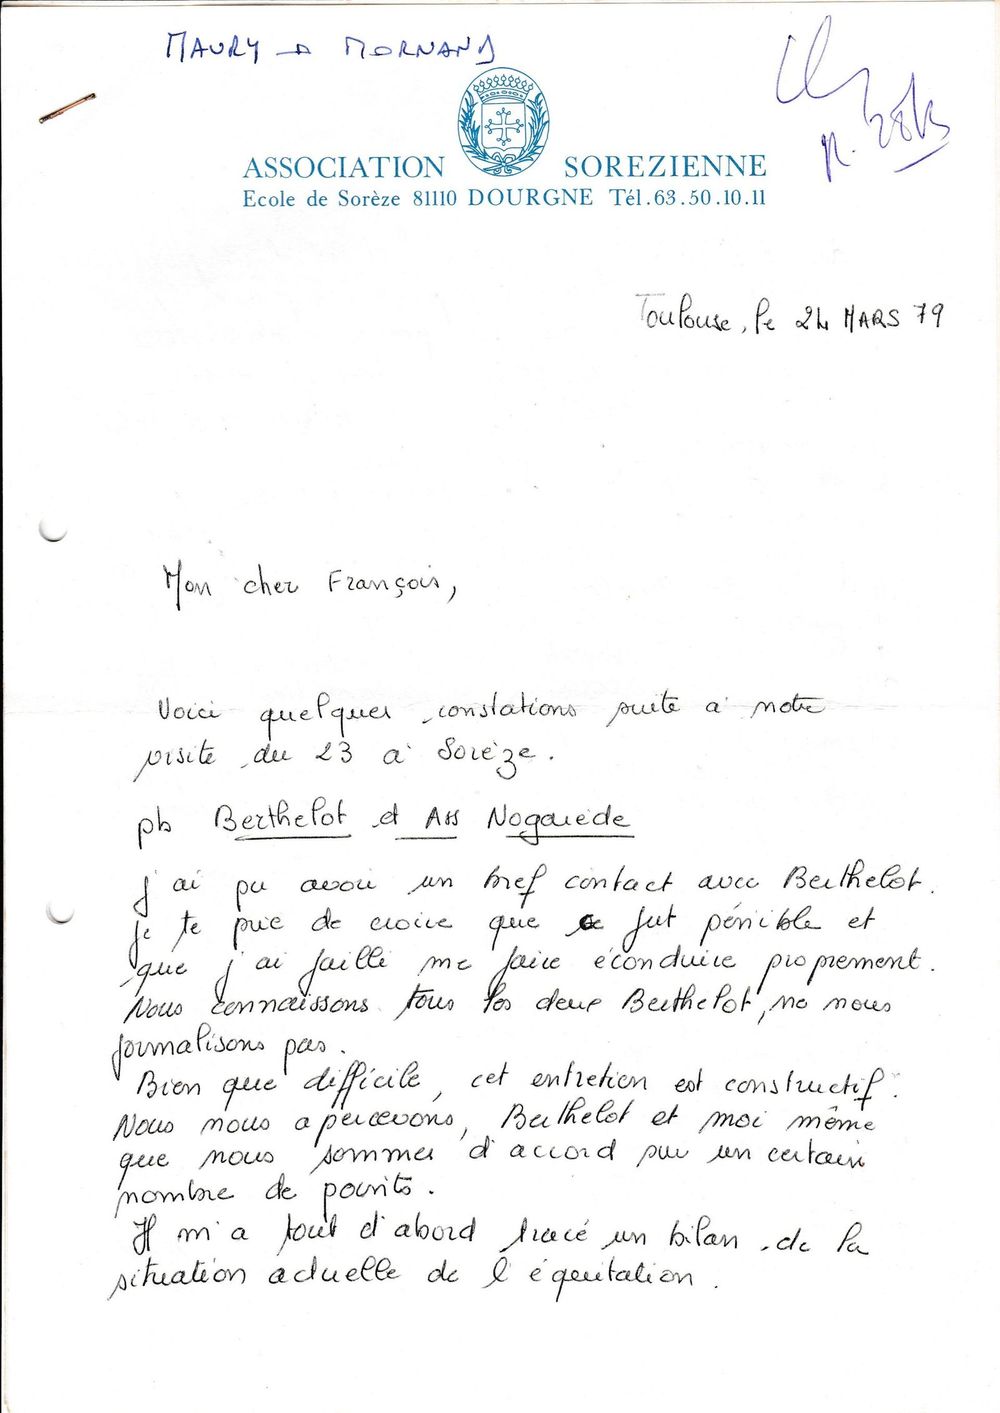 MAURY → MORNAND
R. 28/3
ASSOCIATION SOREZIENNE
Ecole de Sorèze 81110 DOURGNE Tél.63.50.10.11
Toulouse, le 24 MARS 79
Mon cher François,
Voici quelques constations suite à notre
visite du 23 à Sorèze.
pb Berthelot et Ass Nogarède
J'ai pu avoir un bref contact avec Berthelot.
Je te prie de croire que ce fut pénible et
que j'ai failli me faire éconduire proprement.
Nous connaissons tous les deux Berthelot, ne nous
formalisons pas.
Bien que difficile, cet entretien est constructif.
Nous nous apercevons, Berthelot et moi même
que nous sommes d'accord sur un certain
nombre de points.
Il m'a tout d'abord tracé un bilan de la
situation actuelle de l'équitation.